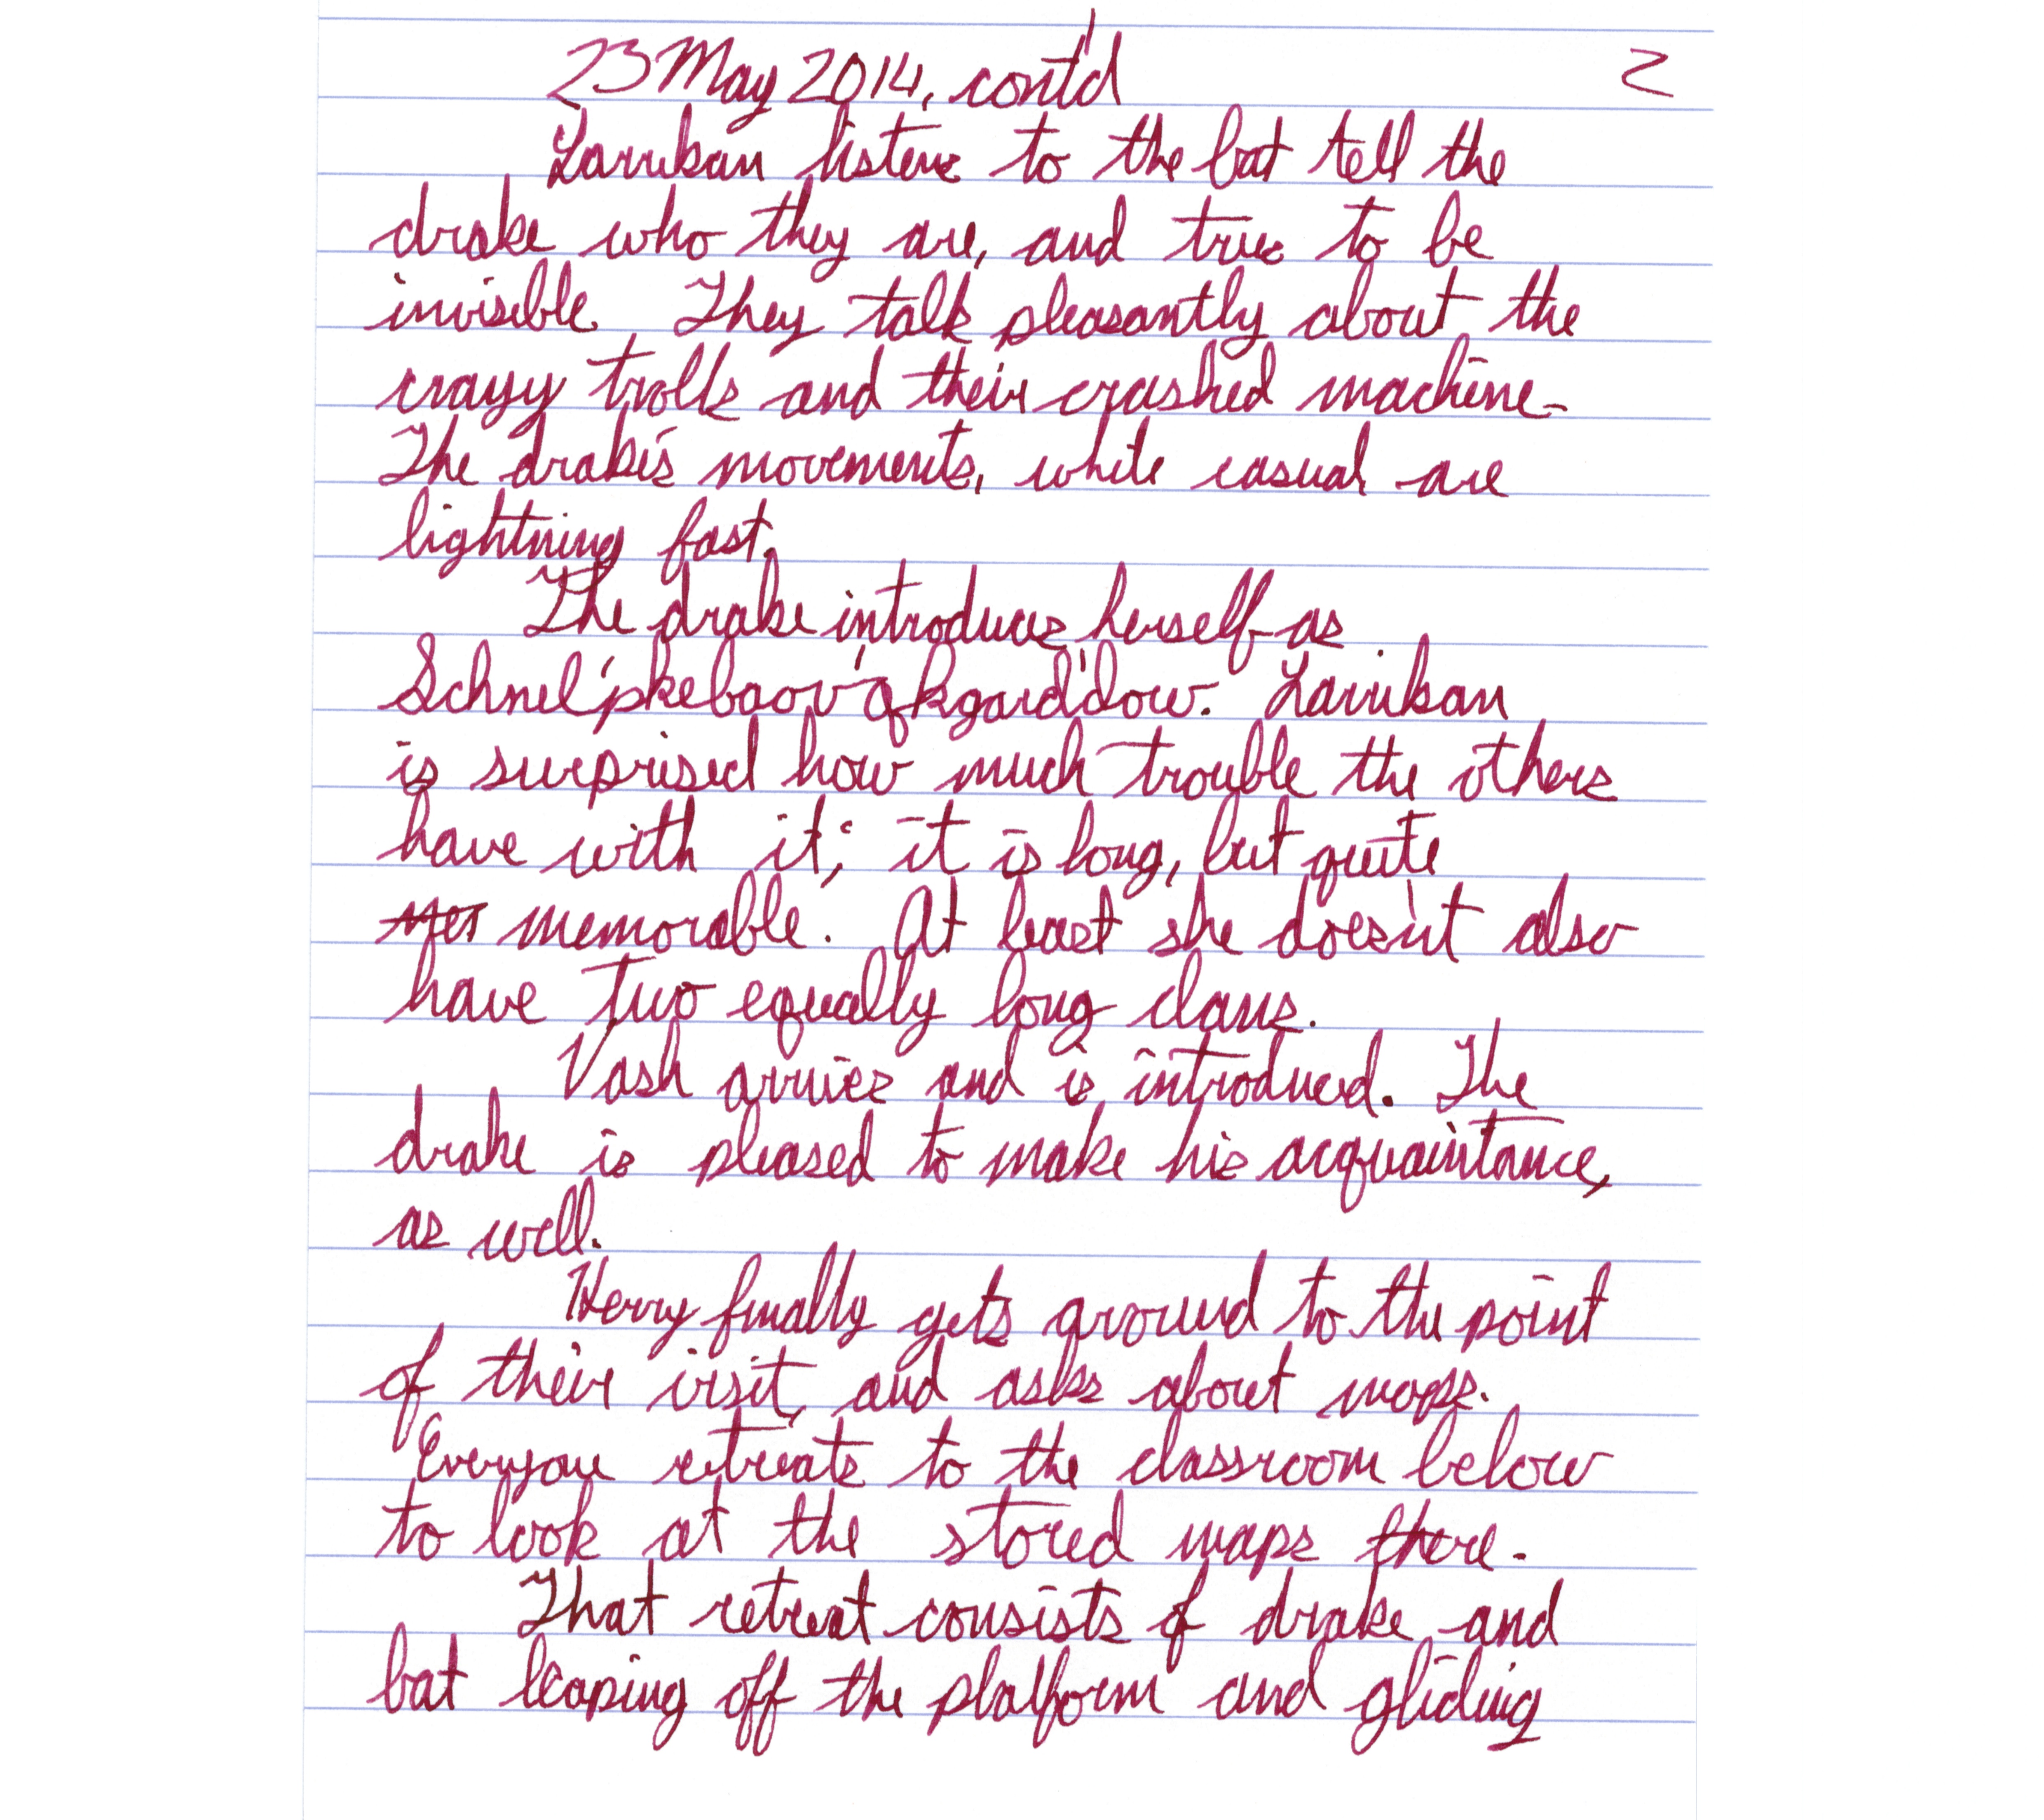 23 May 2014, cont'd 2
Larrikan listens to the bat tell the
drake who they are, and tries to be
invisible. They talk pleasantly about the
crazy trolls and their crashed machine.
The drake's movements, while casual are
lightning fast.
The drake introduces herself as
Schnel'pkebaov'qkgard'dow. Larrikan
is surprised how much trouble the others
have with it; it is long, but quite
mer memorable. At least she doesn't also
have two equally long clans.
Vash arrives and is introduced. The
drake is pleased to make his acquaintance,
as well.
Herry finally gets around to the point
of their visit, and asks about maps.
Everyone retreats to the classroom below
to look at the stored maps there.
That retreat consists of drake and
bat leaping off the platform and gliding